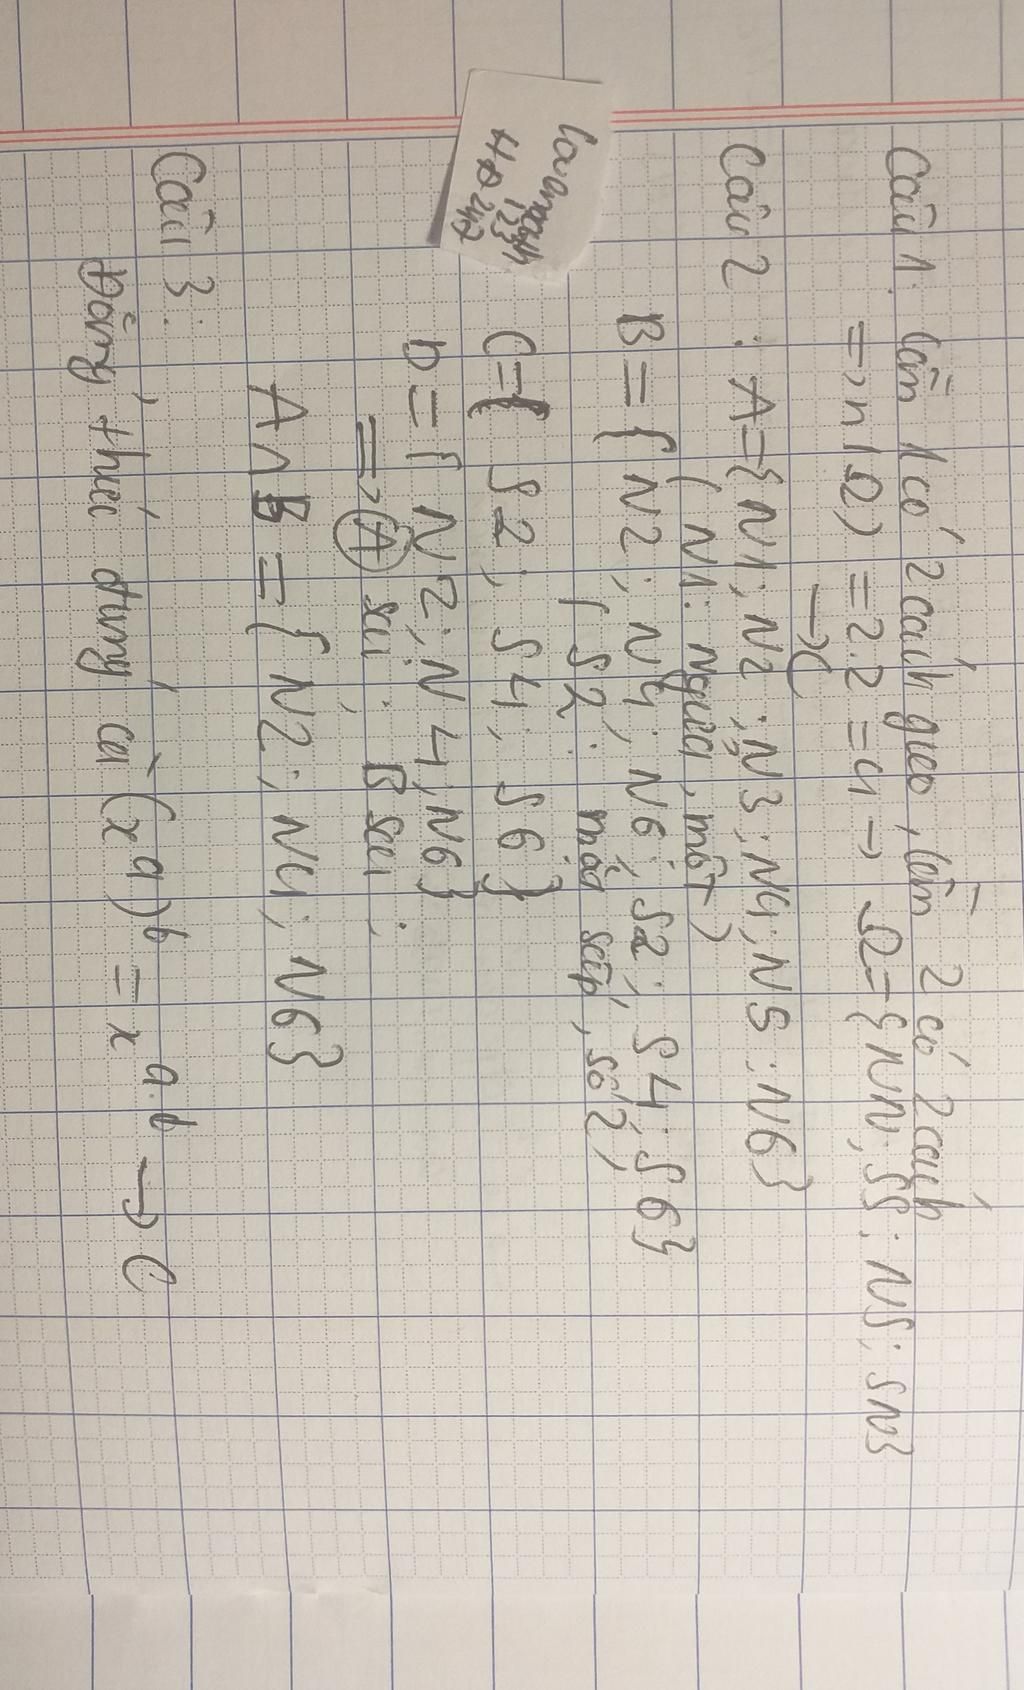 Câu 1: lần 1 có 2 cách gieo, lần 2 có 2 cách
=> n(Ω) = 2.2 = 4 → Ω = {NN; SS; NS; SN}
→ C
Câu 2 : A = {N1; N2; N3; N4; N5; N6}
( N1: Ngửa, một)
B = { N2; N4; N6; S2; S4; S6}
( S2: mặt sấp, số 2)
C = { S2; S4; S6 }
D = { N2; N4; N6}
=> A sai; B sai;
A ∩ B = { N2; N4; N6}
Câu 3:
Đẳng thức đúng là (x^a)^b = x^a.b → C
HD247